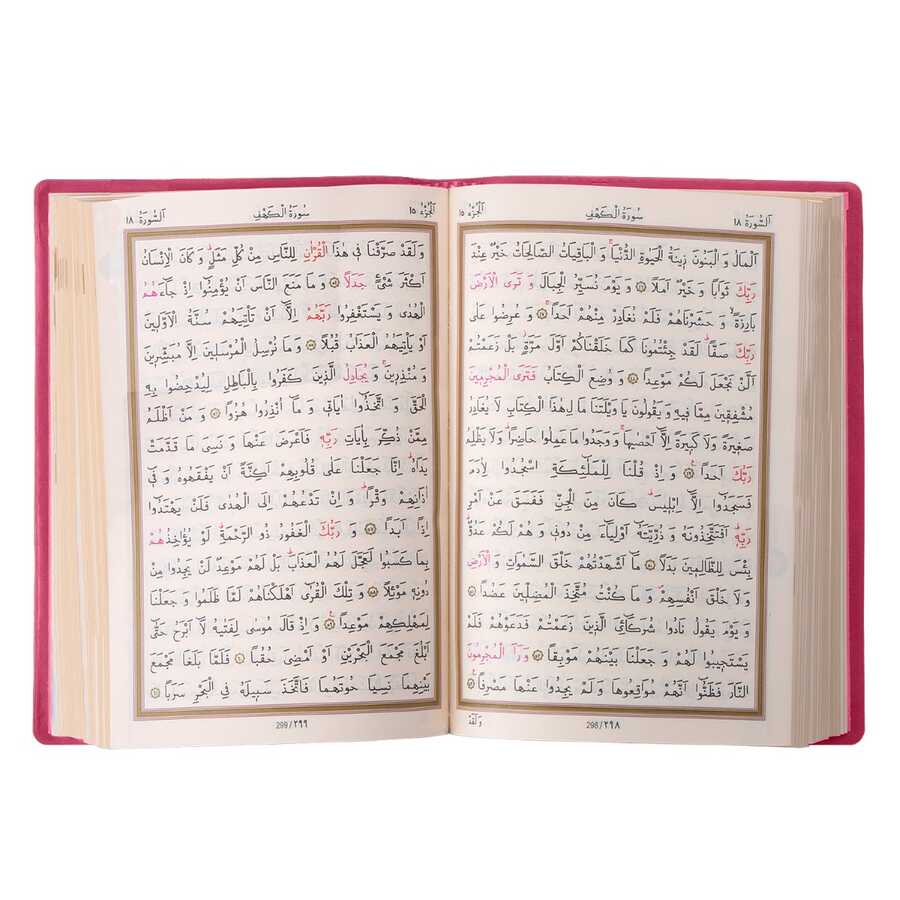 اَلسُّورَةُ ١٨ سُورَةُ الْكَهْفِ اَلْجُزْءُ ١٥
اَلْمَالُ وَ الْبَنُونَ ز۪ينَةُ الْحَيٰوةِ الدُّنْيَاۚ وَ الْبَاقِيَاتُ الصَّالِحَاتُ خَيْرٌ عِنْدَ
رَبِّكَ ثَوَابًا وَ خَيْرٌ اَمَلًا ۝ وَ يَوْمَ نُسَيِّرُ الْجِبَالَ وَ تَرَى الْاَرْضَ
بَارِزَةًۙ وَ حَشَرْنَاهُمْ فَلَمْ نُغَادِرْ مِنْهُمْ اَحَدًاۚ ۝ وَ عُرِضُوا عَلٰى
رَبِّكَ صَفًّاۜ لَقَدْ جِئْتُمُونَا كَمَا خَلَقْنَاكُمْ اَوَّلَ مَرَّةٍۘ بَلْ زَعَمْتُمْ
اَلَّنْ نَجْعَلَ لَكُمْ مَوْعِدًا ۝ وَ وُضِعَ الْكِتَابُ فَتَرَى الْمُجْرِم۪ينَ
مُشْفِق۪ينَ مِمَّا ف۪يهِ وَ يَقُولُونَ يَا وَيْلَتَنَا مَا لِهٰذَا الْكِتَابِ لَا يُغَادِرُ
صَغ۪يرَةً وَ لَا كَب۪يرَةً اِلَّٓا اَحْصٰيهَاۚ وَ وَجَدُوا مَا عَمِلُوا حَاضِرًاۜ وَ لَا يَظْلِمُ
رَبُّكَ اَحَدًا۟ ۝ وَ اِذْ قُلْنَا لِلْمَلٰٓئِكَةِ اسْجُدُوا لِاٰدَمَ
فَسَجَدُٓوا اِلَّٓا اِبْل۪يسَۜ كَانَ مِنَ الْجِنِّ فَفَسَقَ عَنْ اَمْرِ
رَبِّه۪ۜ اَفَتَتَّخِذُونَهُ وَ ذُرِّيَّتَهُٓ اَوْلِيَٓاءَ مِنْ دُون۪ي وَ هُمْ لَكُمْ عَدُوٌّۜ
بِئْسَ لِلظَّالِم۪ينَ بَدَلًا ۝ مَٓا اَشْهَدْتُهُمْ خَلْقَ السَّمٰوَاتِ وَ الْاَرْضِ
وَ لَا خَلْقَ اَنْفُسِهِمْۖ وَ مَا كُنْتُ مُتَّخِذَ الْمُضِلّ۪ينَ عَضُدًا ۝
وَ يَوْمَ يَقُولُ نَادُوا شُرَكَٓاءِيَ الَّذ۪ينَ زَعَمْتُمْ فَدَعَوْهُمْ فَلَمْ
يَسْتَج۪يبُوا لَهُمْ وَ جَعَلْنَا بَيْنَهُمْ مَوْبِقًا ۝ وَ رَاَ الْمُجْرِمُونَ
النَّارَ فَظَنُّٓوا اَنَّهُمْ مُوَاقِعُوهَا وَ لَمْ يَجِدُوا عَنْهَا مَصْرِفًا۟ ۝
298 / ٢٩٨
وَ لَقَدْ
اَلسُّورَةُ ١٨ سُورَةُ الْكَهْفِ اَلْجُزْءُ ١٥
وَ لَقَدْ صَرَّفْنَا ف۪ي هٰذَا الْقُرْاٰنِ لِلنَّاسِ مِنْ كُلِّ مَثَلٍۜ وَ كَانَ الْاِنْسَانُ
اَكْثَرَ شَيْءٍ جَدَلًا ۝ وَ مَا مَنَعَ النَّاسَ اَنْ يُؤْمِنُٓوا اِذْ جَٓاءَهُمُ
الْهُدٰى وَ يَسْتَغْفِرُوا رَبَّهُمْ اِلَّٓا اَنْ تَأْتِيَهُمْ سُنَّةُ الْاَوَّل۪ينَ
اَوْ يَأْتِيَهُمُ الْعَذَابُ قُبُلًا ۝ وَ مَا نُرْسِلُ الْمُرْسَل۪ينَ اِلَّا مُبَشِّر۪ينَ
وَ مُنْذِر۪ينَۚ وَ يُجَادِلُ الَّذ۪ينَ كَفَرُوا بِالْبَاطِلِ لِيُدْحِضُوا بِهِ
الْحَقَّ وَ اتَّخَذُٓوا اٰيَات۪ي وَ مَٓا اُنْذِرُوا هُزُوًا ۝ وَ مَنْ اَظْلَمُ
مِمَّنْ ذُكِّرَ بِاٰيَاتِ رَبِّه۪ فَاَعْرَضَ عَنْهَا وَ نَسِيَ مَا قَدَّمَتْ
يَدَاهُۜ اِنَّا جَعَلْنَا عَلٰى قُلُوبِهِمْ اَكِنَّةً اَنْ يَفْقَهُوهُ وَ ف۪ٓي
اٰذَانِهِمْ وَقْرًاۜ وَ اِنْ تَدْعُهُمْ اِلَى الْهُدٰى فَلَنْ يَهْتَدُٓوا
اِذًا اَبَدًا ۝ وَ رَبُّكَ الْغَفُورُ ذُو الرَّحْمَةِۜ لَوْ يُؤَاخِذُهُمْ
بِمَا كَسَبُوا لَعَجَّلَ لَهُمُ الْعَذَابَۜ بَلْ لَهُمْ مَوْعِدٌ لَنْ يَجِدُوا مِنْ
دُونِه۪ مَوْئِلًا ۝ وَ تِلْكَ الْقُرٰٓى اَهْلَكْنَاهُمْ لَمَّا ظَلَمُوا وَ جَعَلْنَا
لِمَهْلِكِهِمْ مَوْعِدًا۟ ۝ وَ اِذْ قَالَ مُوسٰى لِفَتٰيهُ لَٓا اَبْرَحُ حَتّٰٓى
اَبْلُغَ مَجْمَعَ الْبَحْرَيْنِ اَوْ اَمْضِيَ حُقُبًا ۝ فَلَمَّا بَلَغَا مَجْمَعَ
بَيْنِهِمَا نَسِيَا حُوتَهُمَا فَاتَّخَذَ سَب۪يلَهُ فِي الْبَحْرِ سَرَبًا ۝
299 / ٢٩٩